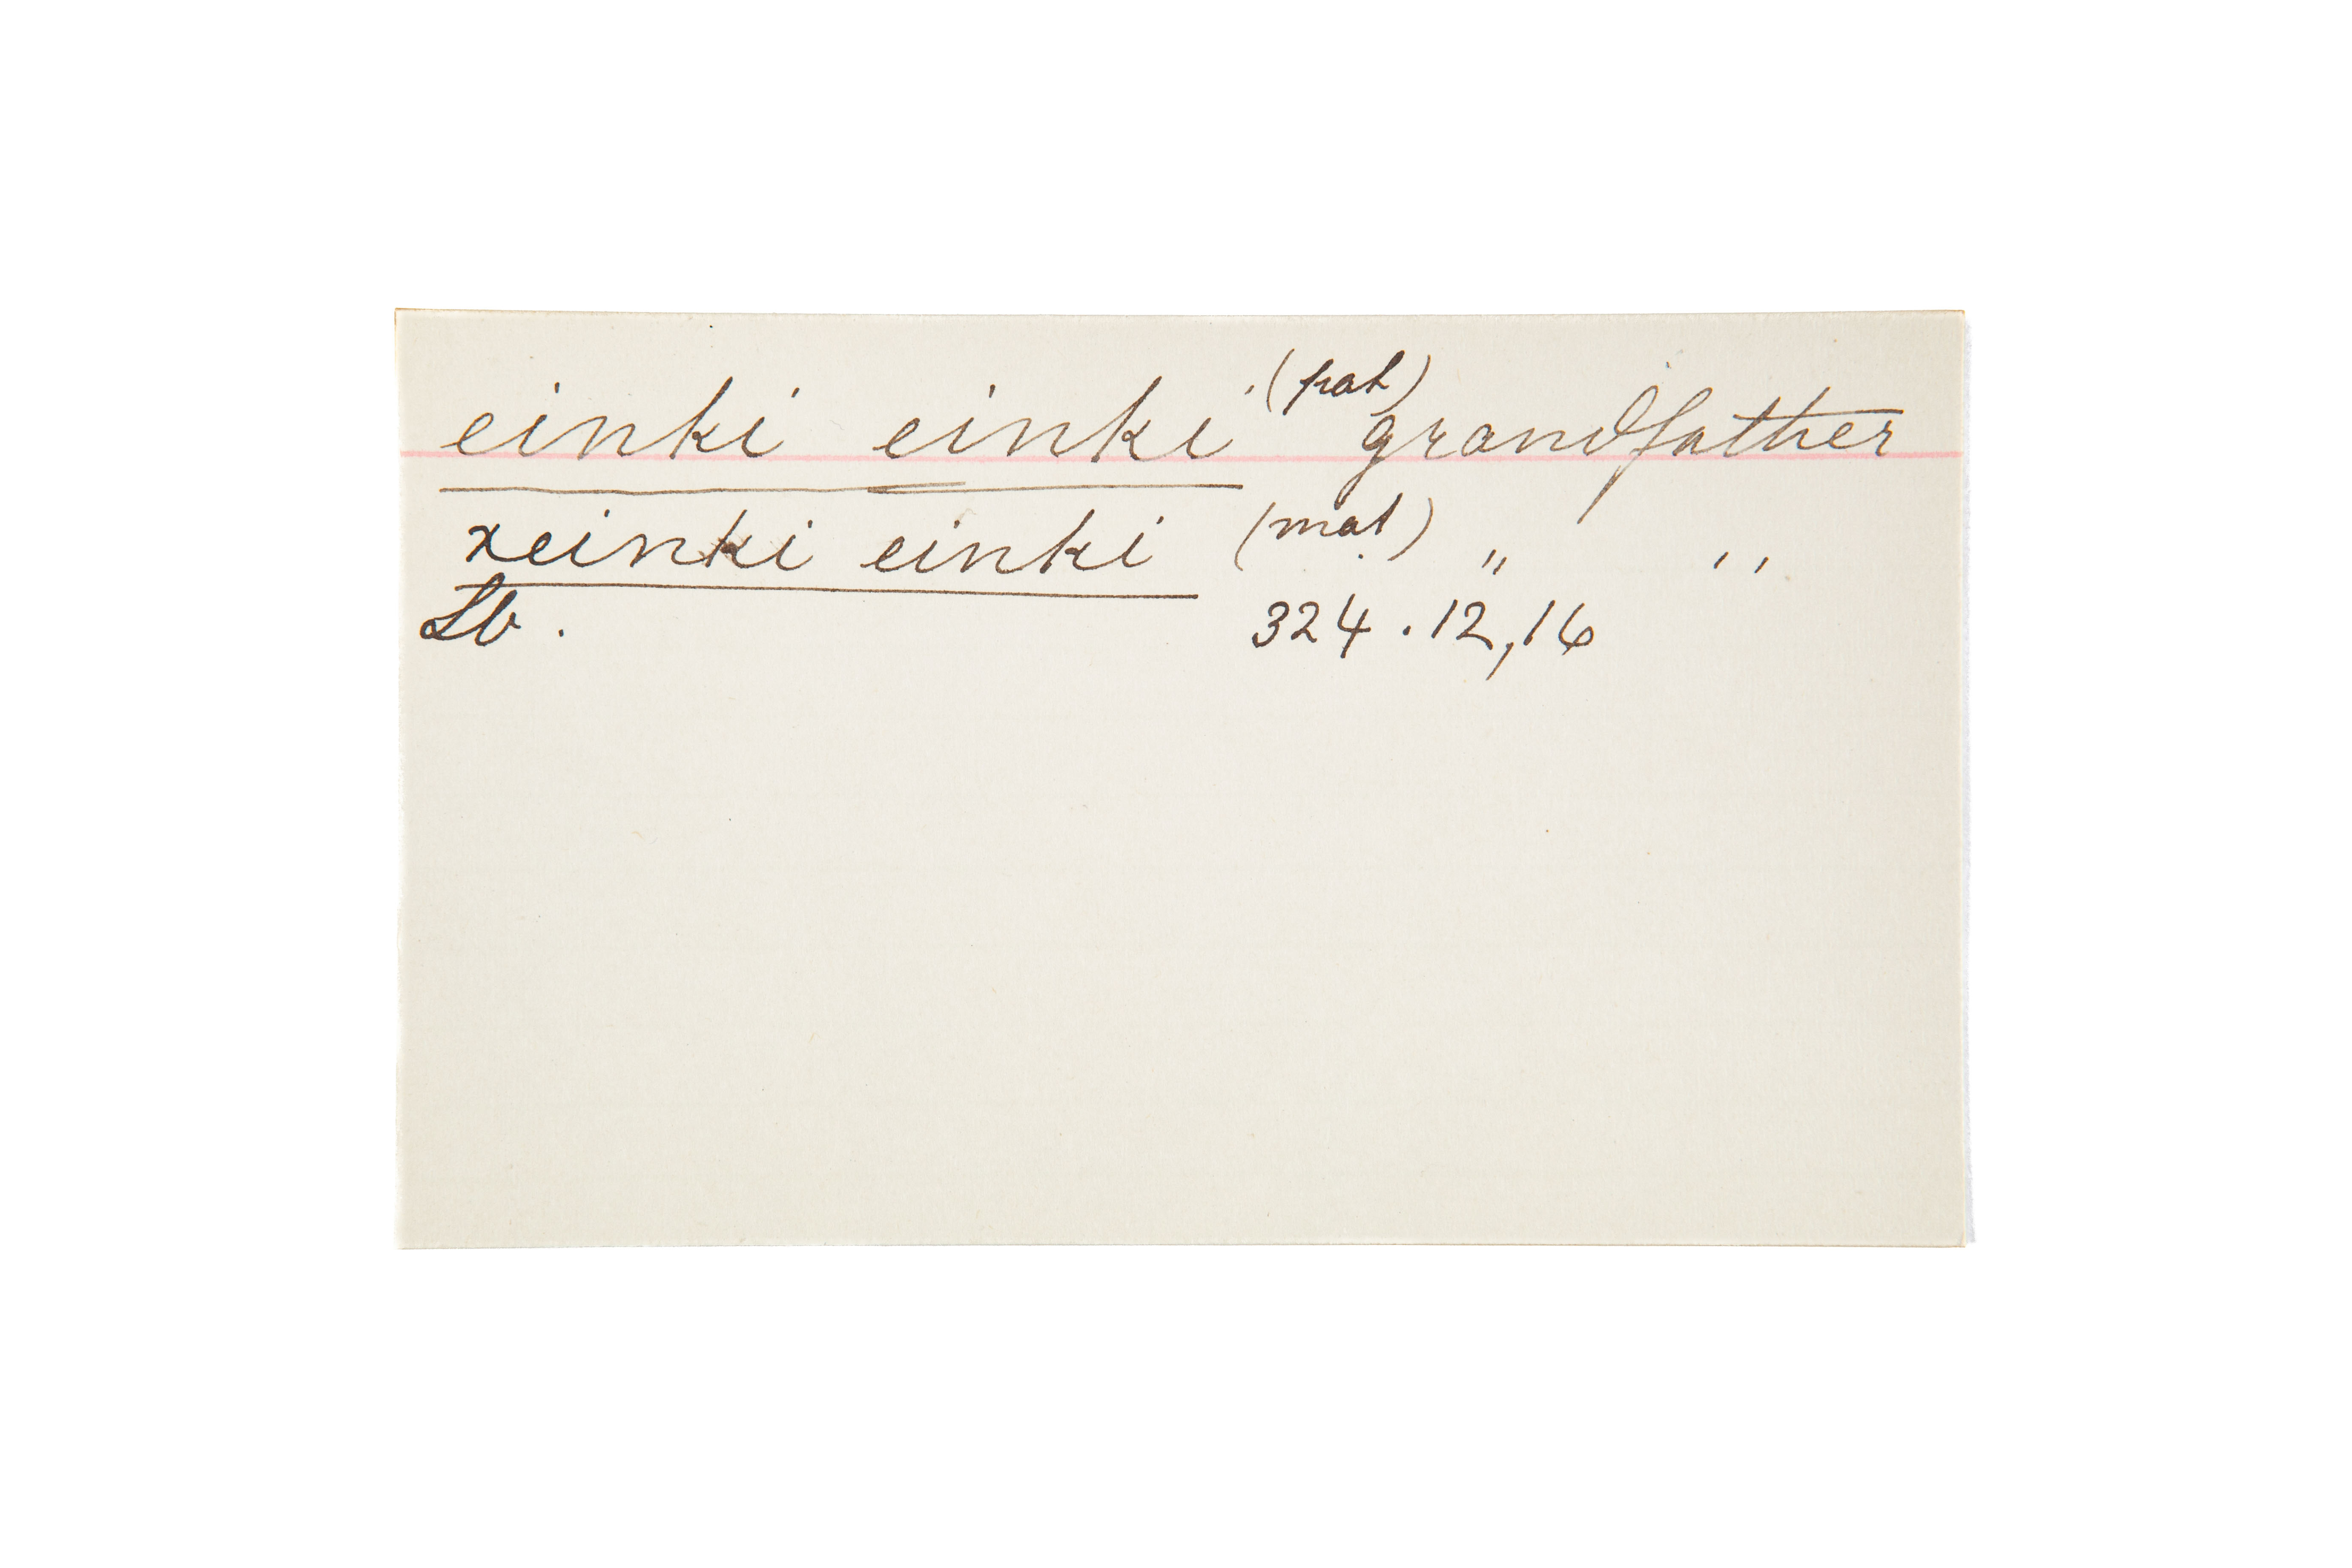 einki einki (pat) grandfather
xeinki einki (mat) " "
Lb. 324.12,16